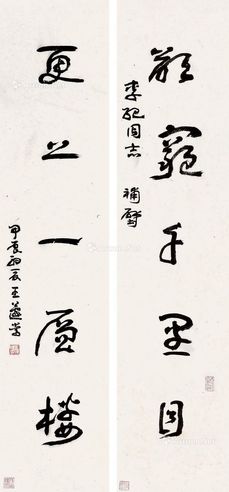 欲窮千里目
李砚同志 補壁
更上一層樓
甲辰初云王蘧常